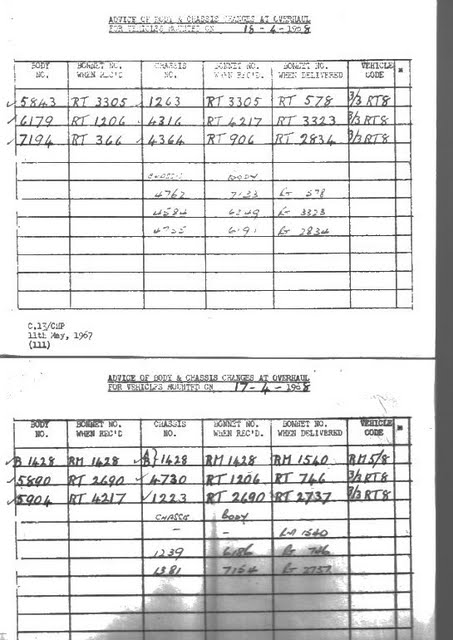 ADVICE OF BODY & CHASSIS CHANGES AT OVERHAUL
FOR VEHICLES MOUNTED ON 16 - 4 - 1968
BODY NO. BONNET NO. WHEN REC'D CHASSIS NO. BONNET NO. WHEN REC'D. BONNET NO. WHEN DELIVERED VEHICLE CODE *
✓5843 RT 3305 ✓1263 RT 3305 RT 578 3/3 RT8
✓6179 RT 1206 ✓4316 RT 4217 RT 3323 3/3 RT8
✓7194 RT 366 ✓4364 RT 906 RT 2834 3/3 RT8
CHASSIS BODY
4762 7133 Rt 578
4584 Rt 3323
Rt 2834
C.13/CMP
11th May, 1967
(111)
ADVICE OF BODY & CHASSIS CHANGES AT OVERHAUL
FOR VEHICLES MOUNTED ON 17 - 4 - 1968
BODY NO. BONNET NO. WHEN REC'D CHASSIS NO. BONNET NO. WHEN REC'D. BONNET NO. WHEN DELIVERED VEHICLE CODE *
✓B 1428 RM 1428 ✓ 1428 RM 1428 RM 1540 RM 5/8
✓5890 RT 2690 ✓4730 RT 1206 RT 746 3/3 RT8
✓5904 RT 4217 ✓1223 RT 2690 RT 2737 3/3 RT8
CHASSIS BODY
- - RM 1540
1239 6186 Rt 746
1381 7154 Rt